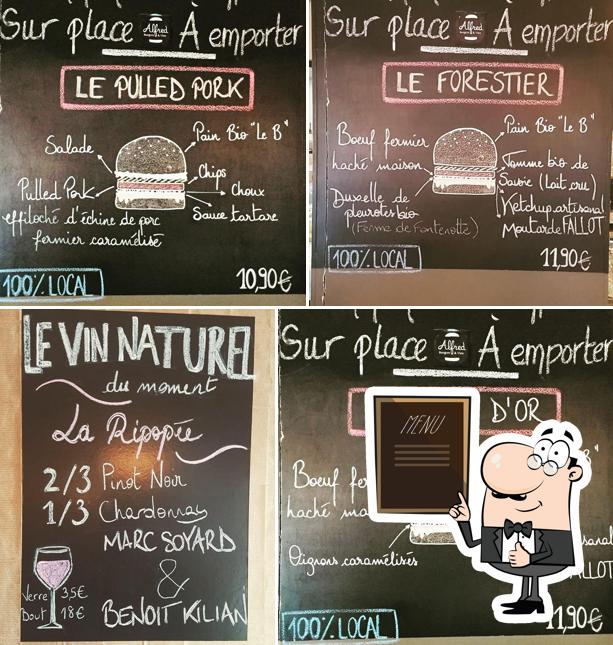 Sur place Alfred À emporter
LE PULLED PORK
Pain Bio "Le B"
Salade
Chips
Pulled Pork
Choux
effiloché d'échine de porc
Sauce tartare
fermier caramélisé
100% LOCAL
10,90€
Sur place Alfred À emporter
LE FORESTIER
Pain Bio "Le B"
Boeuf fermier
haché maison
Tomme bio de
Savoie (Lait cru)
Duxelle de
pleurotes bio
(Ferme de Fontenotte)
Ketchup artisanal
Moutarde FALLOT
100% LOCAL
11,90€
LE VIN NATUREL
du moment
La Ripopée
2/3 Pinot Noir
1/3 Chardonnay
MARC SOYARD
&
Verre 3,5€
Bout 18€
BENOIT KILIAN
Sur place Alfred À emporter
D'OR
MENU
Boeuf fe
haché ma
Oignons caramélisés
sanal
ALLOT
100% LOCAL
11,90€